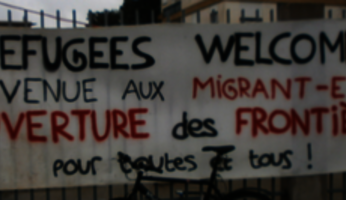 EFUGEES WELCOM
VENUE AUX MiGRANT-E
VERTURE des FRONTiÈ
pour toutes et tous !